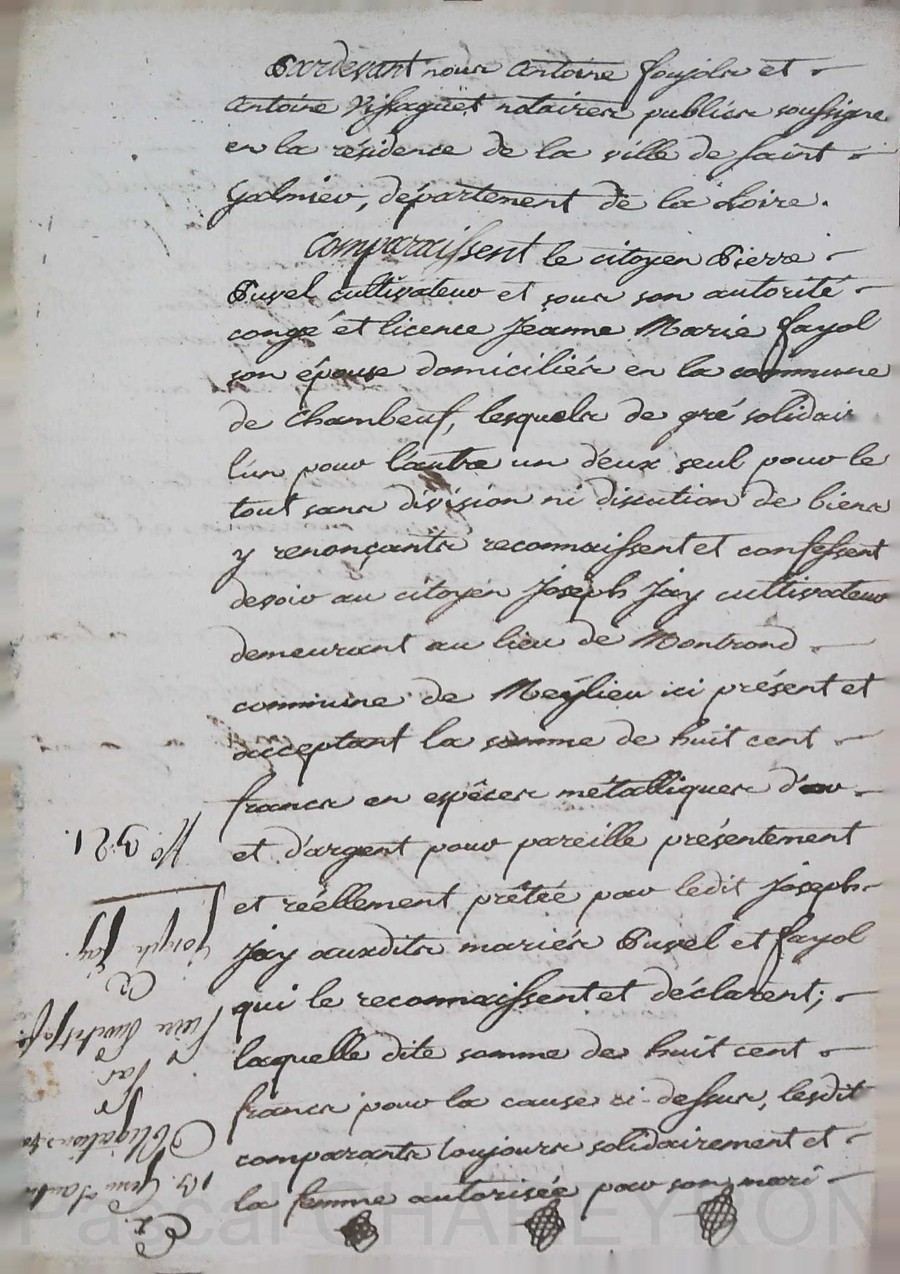 Pardevant nous Antoine foujols et
Antoine Vissaguet notaires publics soussigne
en la résidence de la ville de saint
galmier, département de la Loire.
Comparaissent le citoyen Pierre
Puvel cultivateur et sous son autorité
congé et licence Jéanne Marie fayol
son épouse domiciliés en la commune
de Chambeuf, lesquels de gré solidair
l'un pour l'autre un d'eux seul pour le
tout sans division ni discution de biens
y renonçants reconnaissent et confessent
devoir au citoyen Joseph Jay cultivateur
demeurant au lieu de Montrond
commune de Meylieu ici présent et
acceptant la somme de huit cent
francs en espêces métalliques d'or
et d'argent pour pareille présentement
et réellement prêtée par ledit Joseph
Jay auxdits mariés Puvel et fayol
qui le reconnaissent et déclarent;
laquelle dite somme de huit cent
francs pour la cause ci-dessus, lesdit
comparants toujours solidairement et
la femme autorisée par son mari
N.° 321.
Joseph Jay
Pierre
Par
Obligation
Pascal CHAREYRON